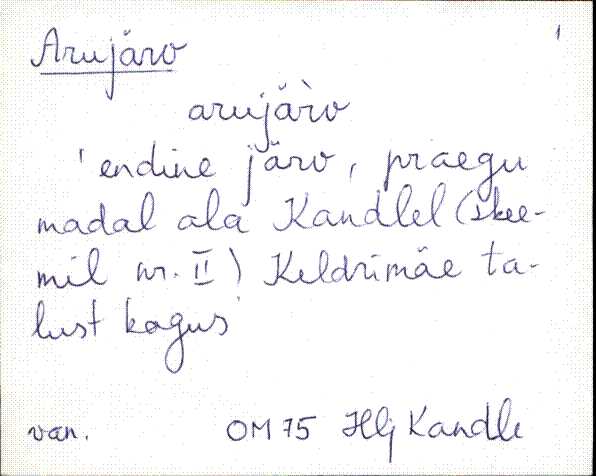 Arujärv
1
arujä̀rv
'endine järv, praegu
madal ala Kandlel (skee-
mil nr. II) Keldrimäe ta-
lust kagus'
van. OM 75 Hlj Kandle